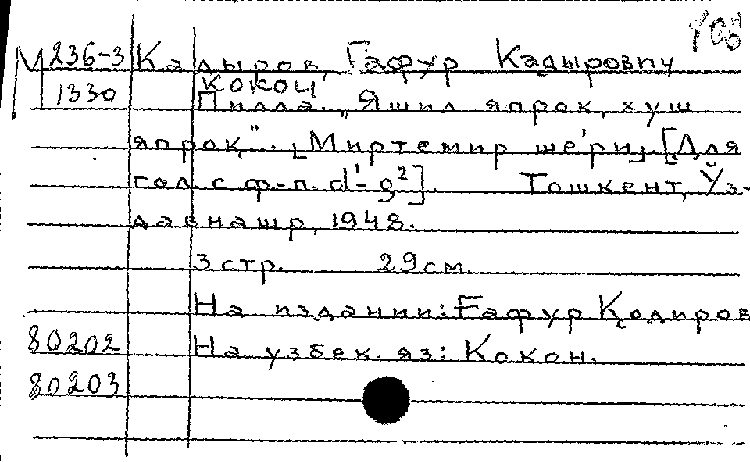 М 236-3 Кадыров, Гафур Кадырович
1330 Кокон
Пилла. „Яшил япроқ, хуш
япроқ". [Миртемир ше'ри]. [Для
гол. с ф-п. d¹-g²]. Тошкент, Ўз-
давнашр, 1948.
3 стр. 29 см.
На издании: Ғафур Қодиров
80202 На узбек. яз: Кокон.
80203